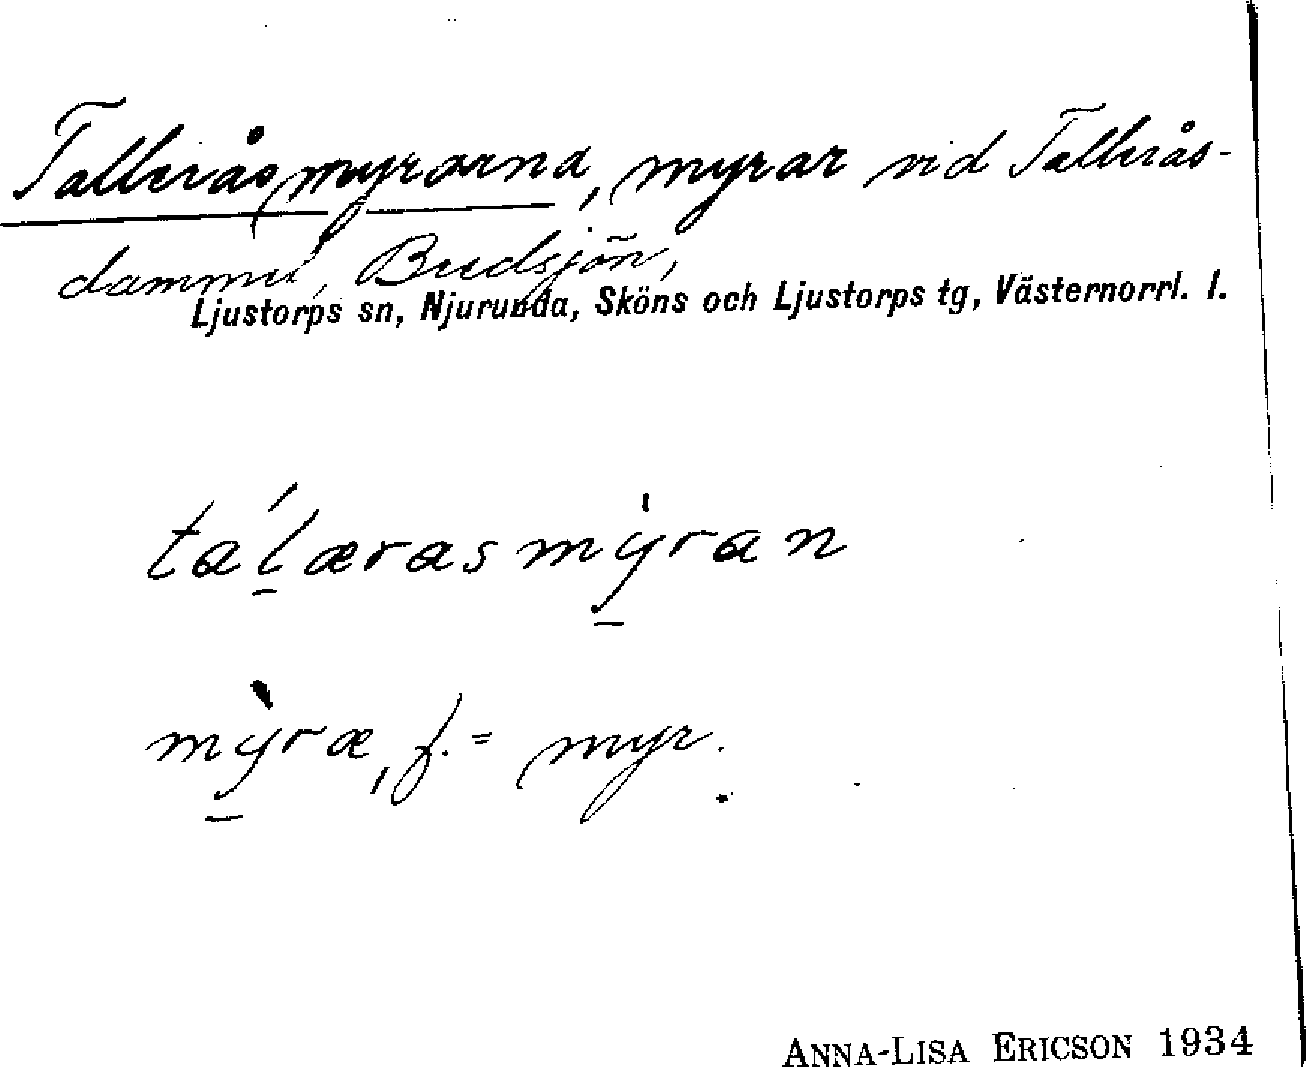 Talleråsmyrarna, myrar vid Tallerås-
dammen, Bredsjön,
Ljustorps sn, Njurunda, Sköns och Ljustorps tg, Västernorrl. l.
tálærasmýran
mỳræ, f. = myr.
ANNA-LISA ERICSON 1934